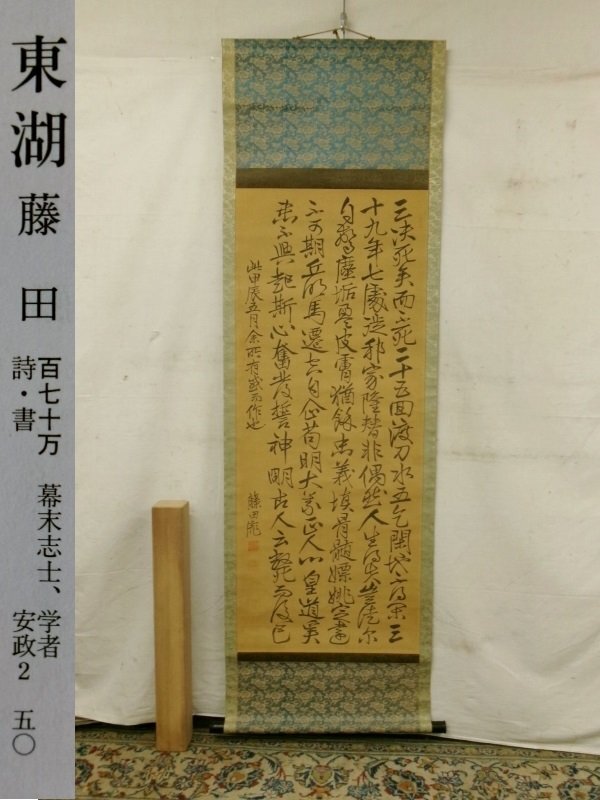 東湖 藤田
百七十万 幕末志士、学者
詩・書 安政2 五〇
三決死矣而不死二十五回渡刀水五乞閑地不得閑三
十九年七處徙邦家隆替非偶然人生得失豈徒爾
自驚塵垢盈皮膚猶餘忠義填骨髓嫖姚定遠
不可期丘明馬遷空自企苟明大義正人心皇道奚
患不興起斯心奮發誓神明古人云斃而後已
此甲辰五月余所有感而作也
藤田彪